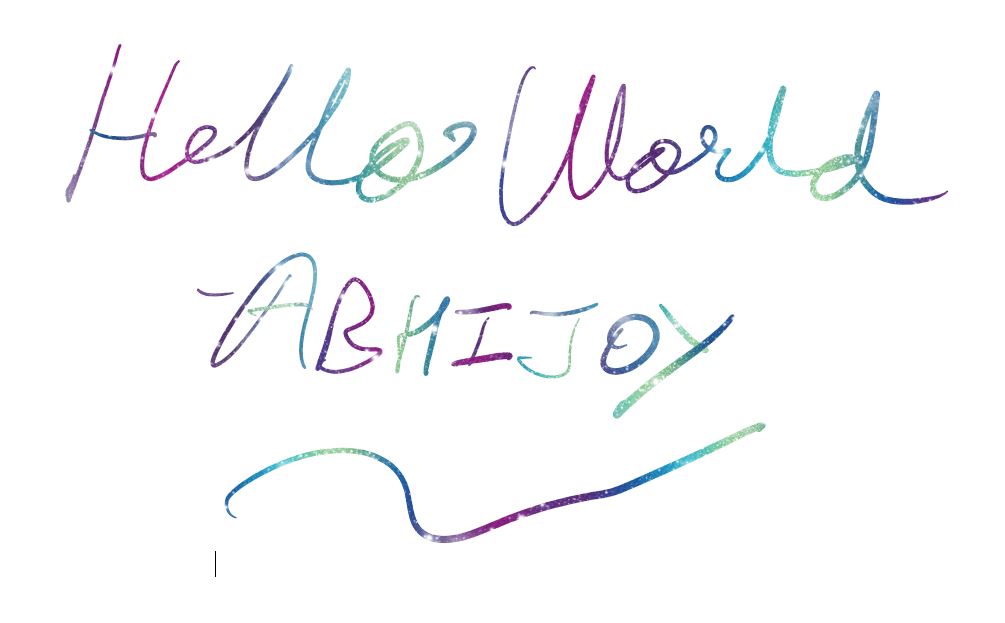 Hello World
-ABHIJOY